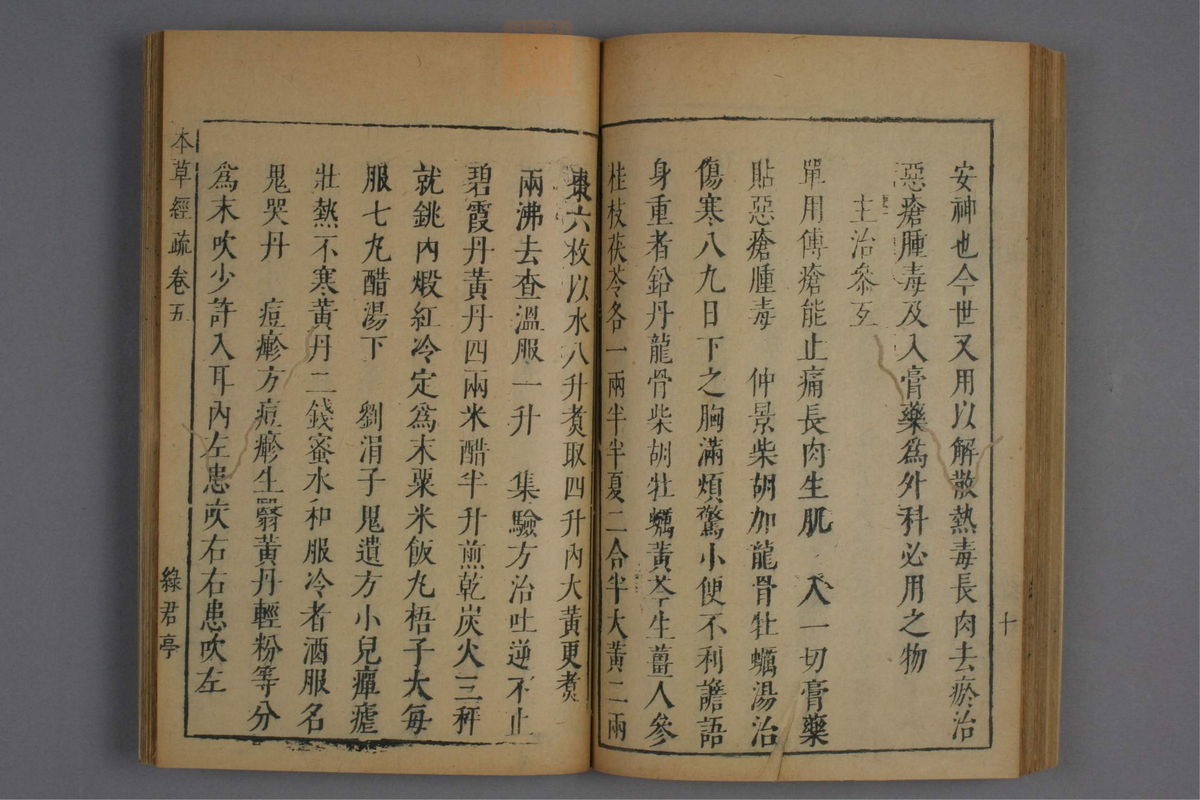 安神也今世又用以解散熱毒長肉去瘀治
惡瘡腫毒及入膏藥爲外科必用之物
主治參互
單用傅瘡能止痛長肉生肌　入一切膏藥
貼惡瘡腫毒　仲景柴胡加龍骨牡蠣湯治
傷寒八九日下之胸滿煩驚小便不利譫語
身重者鉛丹龍骨柴胡牡蠣黃芩生薑人參
桂枝茯苓各一兩半半夏二合半大黃二兩
十
棗六枚以水八升煑取四升內大黃更煑
兩沸去查溫服一升　集驗方治吐逆不止
碧霞丹黃丹四兩米醋半升煎乾炭火三秤
就銚內煆紅冷定爲末粟米飯丸梧子大每
服七丸醋湯下　劉涓子鬼遺方小兒癉瘧
壯熱不寒黃丹二錢蜜水和服冷者酒服名
鬼哭丹　痘疹方痘疹生翳黃丹輕粉等分
爲末吹少許入耳內左患吹右右患吹左
本草經疏卷五
綠君亭